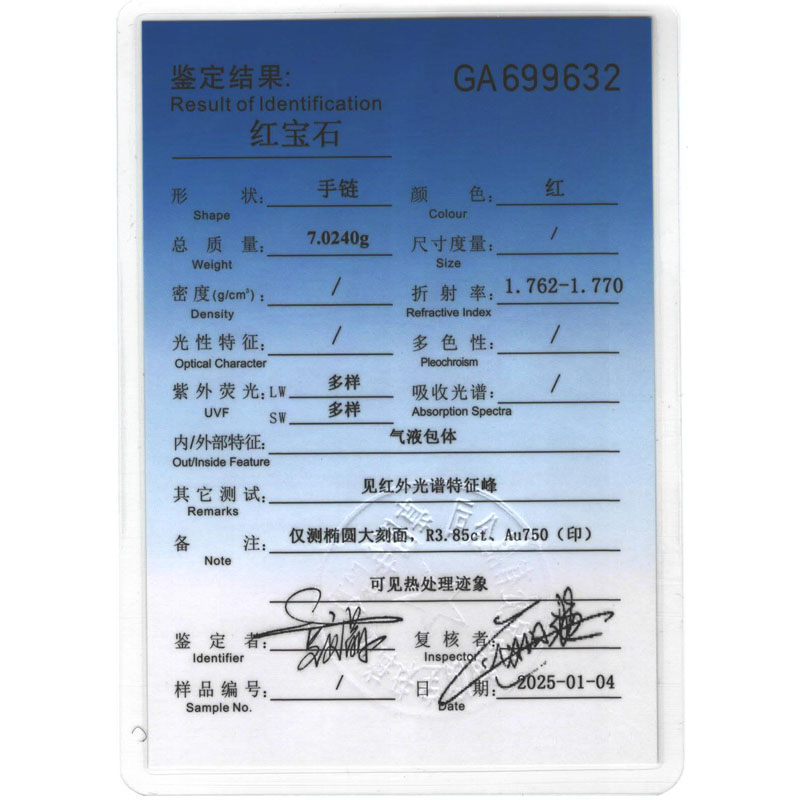 鉴定结果: GA699632
Result of Identification
红宝石
形 状: 手链 颜 色: 红
Shape Colour
总 质 量: 7.0240g 尺寸度量: /
Weight Size
密度(g/cm³): / 折 射 率: 1.762-1.770
Density Refractive Index
光性特征: / 多 色 性: /
Optical Character Pleochroism
紫外荧光: LW 多样 吸收光谱: /
UVF SW 多样 Absorption Spectra
内/外部特征: 气液包体
Out/Inside Feature
其它测试: 见红外光谱特征峰
Remarks
备 注: 仅测椭圆大刻面, R3.85ct、Au750(印)
Note
可见热处理迹象
鉴 定 者: 复 核 者:
Identifier Inspector
样品编号: / 日 期: 2025-01-04
Sample No. Date